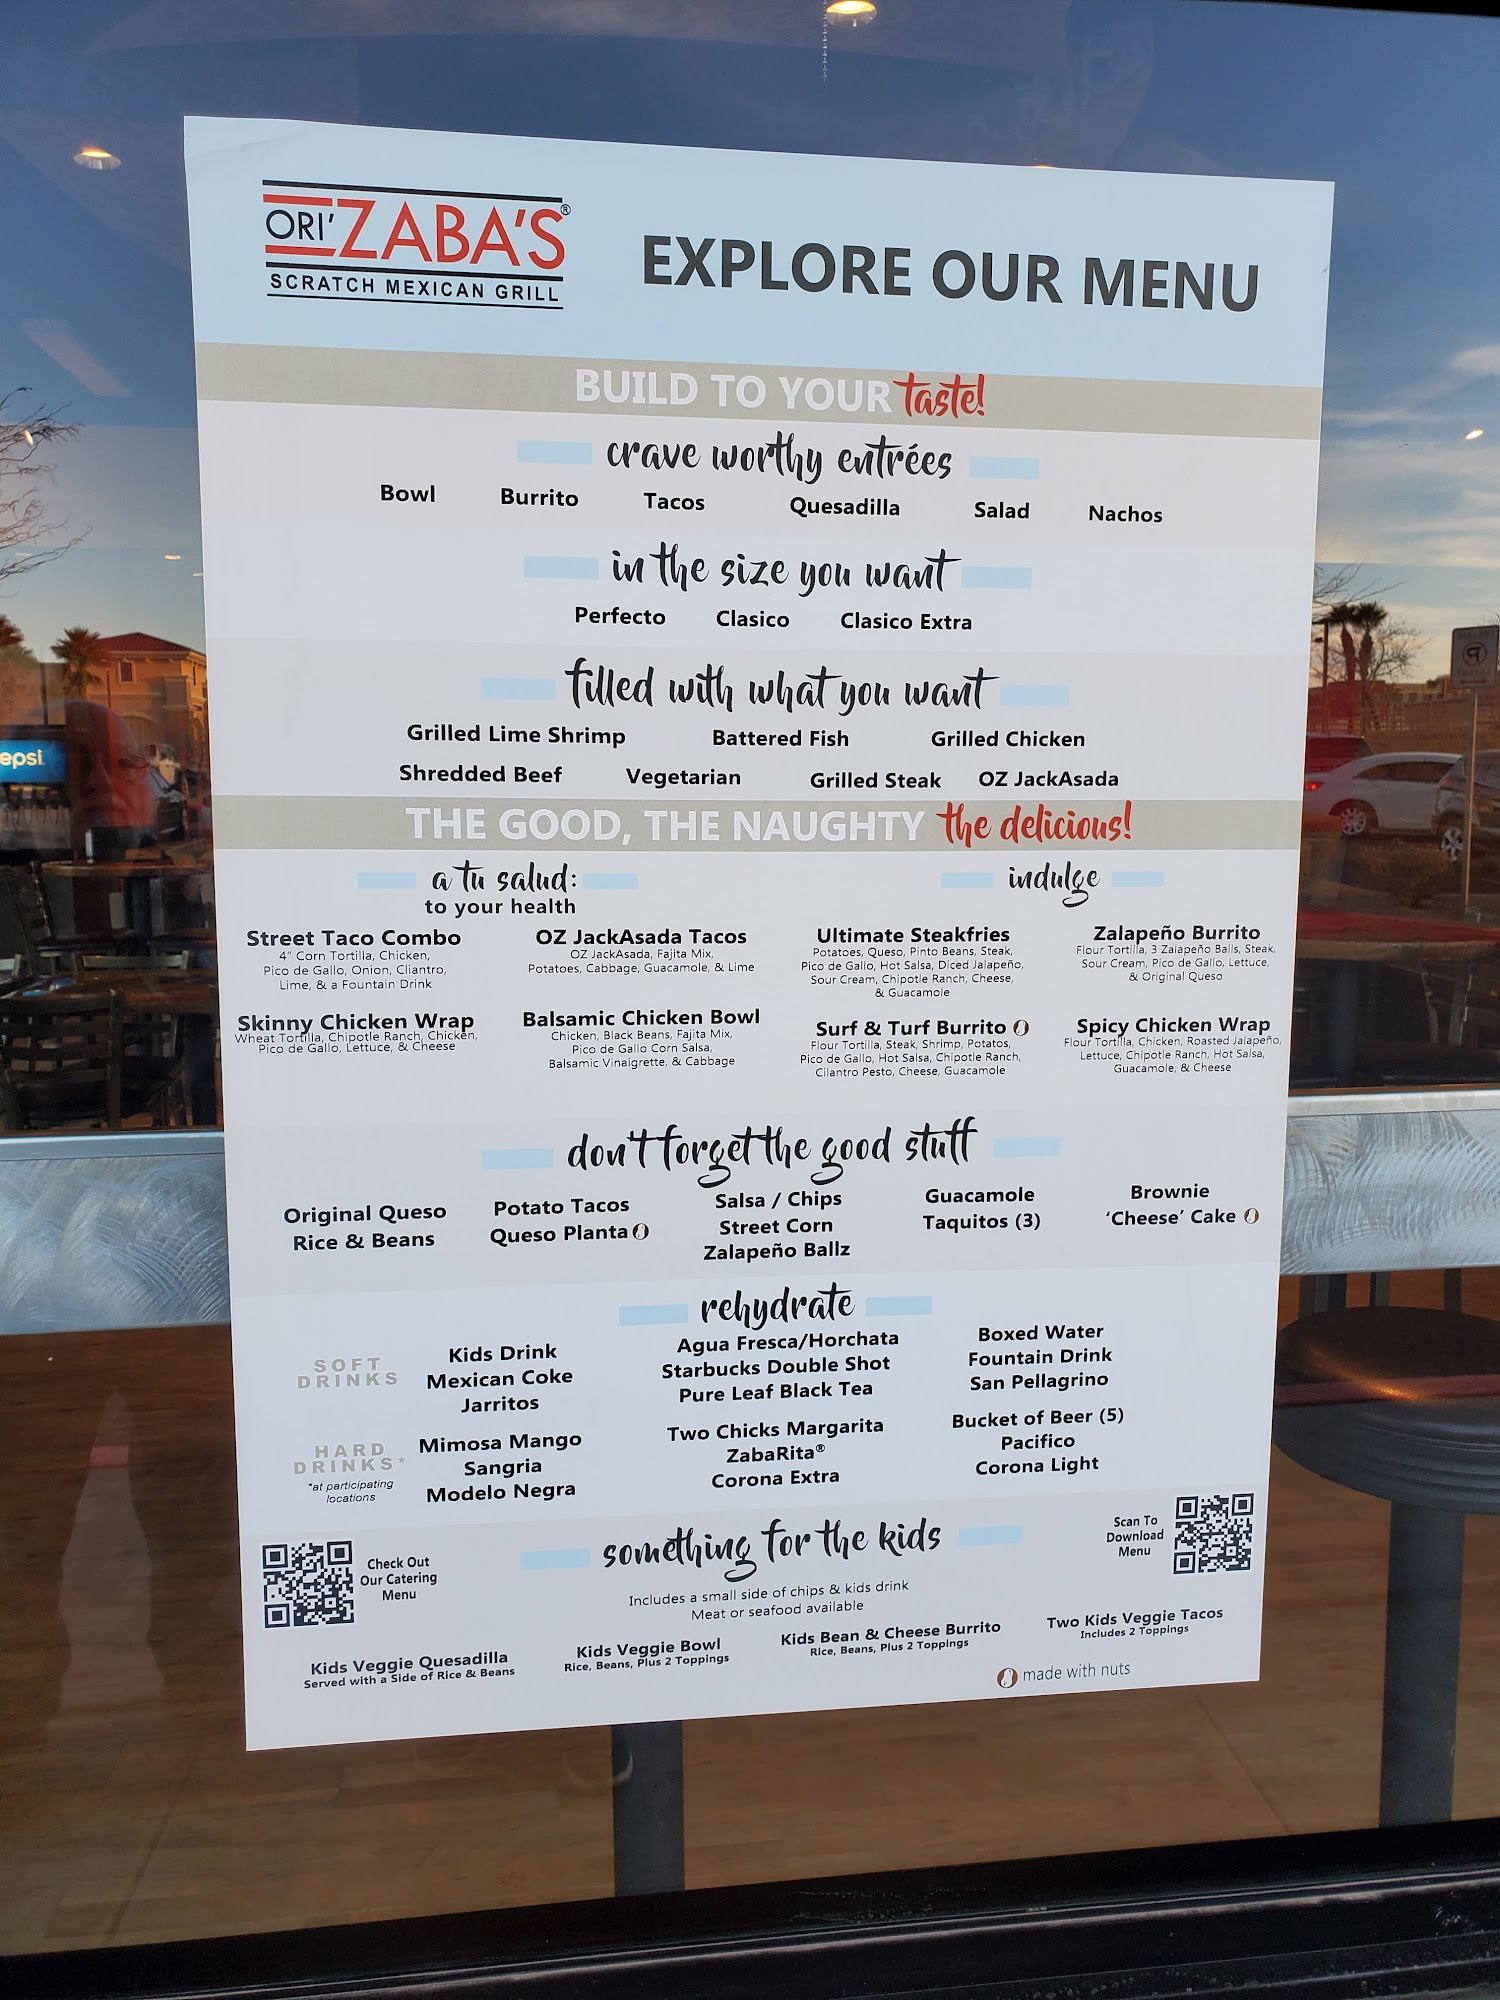 ORI'ZABA'S®
SCRATCH MEXICAN GRILL
EXPLORE OUR MENU
BUILD TO YOUR taste!
crave worthy entrées
Bowl Burrito Tacos Quesadilla Salad Nachos
in the size you want
Perfecto Clasico Clasico Extra
filled with what you want
Grilled Lime Shrimp Battered Fish Grilled Chicken
Shredded Beef Vegetarian Grilled Steak OZ JackAsada
THE GOOD, THE NAUGHTY the delicious!
a tu salud:
to your health
Street Taco Combo
4" Corn Tortilla, Chicken,
Pico de Gallo, Onion, Cliantro,
Lime, & a Fountain Drink
OZ JackAsada Tacos
OZ JackAsada, Fajita Mix,
Potatoes, Cabbage, Guacamole, & Lime
Skinny Chicken Wrap
Wheat Tortilla, Chipotle Ranch, Chicken,
Pico de Gallo, Lettuce, & Cheese
Balsamic Chicken Bowl
Chicken, Black Beans, Fajita Mix,
Pico de Gallo Corn Salsa,
Balsamic Vinaigrette, & Cabbage
indulge
Ultimate Steakfries
Potatoes, Queso, Pinto Beans, Steak,
Pico de Gallo, Hot Salsa, Diced Jalapeño,
Sour Cream, Chipotle Ranch, Cheese,
& Guacamole
Zalapeño Burrito
Flour Tortilla, 3 Zalapeño Balls, Steak,
Sour Cream, Pico de Gallo, Lettuce,
& Original Queso
Surf & Turf Burrito
Flour Tortilla, Steak, Shrimp, Potatos,
Pico de Gallo, Hot Salsa, Chipotle Ranch,
Cilantro Pesto, Cheese, Guacamole
Spicy Chicken Wrap
Flour Tortilla, Chicken, Roasted Jalapeño,
Lettuce, Chipotle Ranch, Hot Salsa,
Guacamole, & Cheese
don't forget the good stuff
Original Queso
Rice & Beans
Potato Tacos
Queso Planta
Salsa / Chips
Street Corn
Zalapeño Ballz
Guacamole
Taquitos (3)
Brownie
'Cheese' Cake
rehydrate
SOFT
DRINKS
Kids Drink
Mexican Coke
Jarritos
Agua Fresca/Horchata
Starbucks Double Shot
Pure Leaf Black Tea
Boxed Water
Fountain Drink
San Pellagrino
HARD
DRINKS*
*at participating
locations
Mimosa Mango
Sangria
Modelo Negra
Two Chicks Margarita
ZabaRita®
Corona Extra
Bucket of Beer (5)
Pacifico
Corona Light
something for the kids
Includes a small side of chips & kids drink
Meat or seafood available
Check Out
Our Catering
Menu
Scan To
Download
Menu
Kids Veggie Quesadilla
Served with a Side of Rice & Beans
Kids Veggie Bowl
Rice, Beans, Plus 2 Toppings
Kids Bean & Cheese Burrito
Rice, Beans, Plus 2 Toppings
Two Kids Veggie Tacos
Includes 2 Toppings
made with nuts
epsi